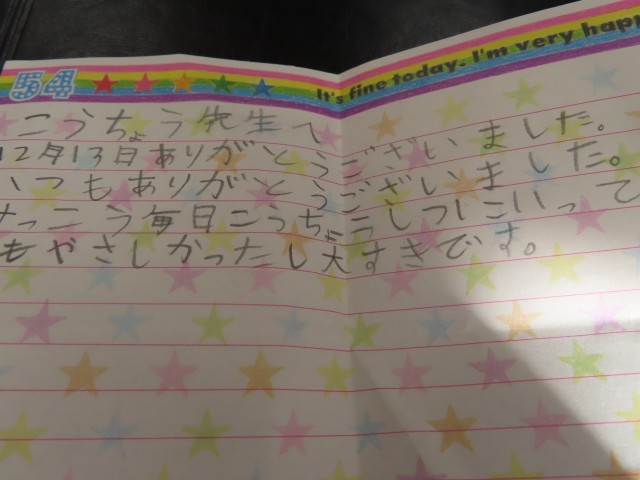 54
It's fine today. I'm very happ
こうちょう先生へ
12月13日ありがとうございました。
いつもありがとうございました。
けっこう毎日こうちょうしつにいって
もやさしかったし大すきです。